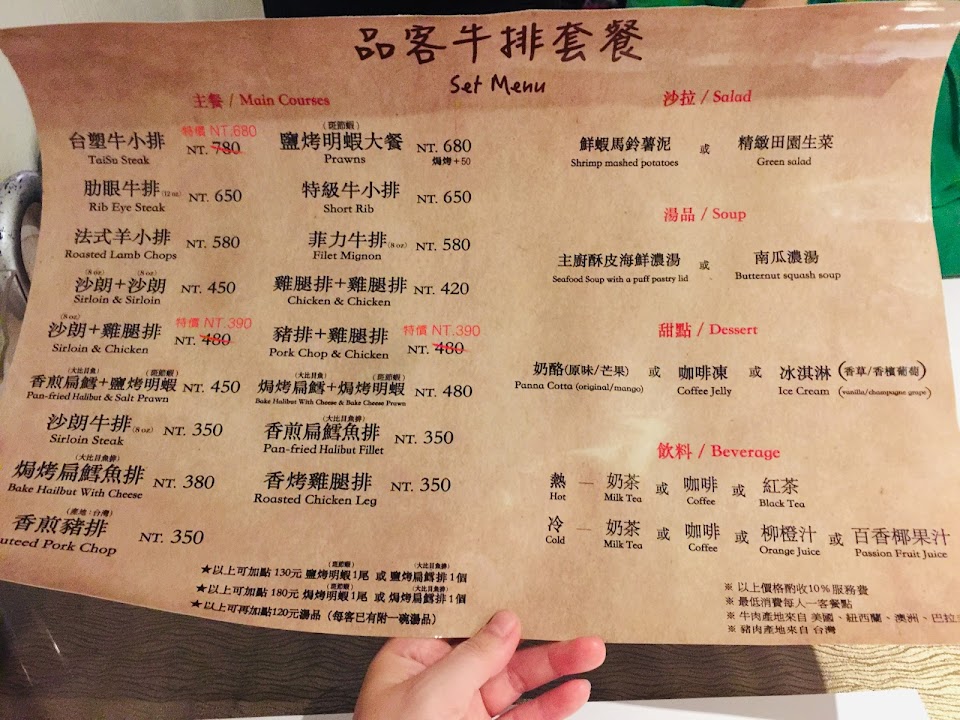 品客牛排套餐
Set Menu
主餐 / Main Courses
台塑牛小排 特價 NT.680 NT. 780
TaiSu Steak
(斑節蝦)
鹽烤明蝦大餐 NT. 680
Prawns 焗烤+50
肋眼牛排(12 oz) NT. 650
Rib Eye Steak
特級牛小排 NT. 650
Short Rib
法式羊小排 NT. 580
Roasted Lamb Chops
菲力牛排(8 oz) NT. 580
Filet Mignon
(8 oz) (8 oz)
沙朗+沙朗 NT. 450
Sirloin & Sirloin
雞腿排+雞腿排 NT. 420
Chicken & Chicken
(8 oz)
沙朗+雞腿排 特價 NT.390 NT. 480
Sirloin & Chicken
豬排+雞腿排 特價 NT.390 NT. 480
Pork Chop & Chicken
(大比目魚) (斑節蝦)
香煎扁鱈+鹽烤明蝦 NT. 450
Pan-fried Halibut & Salt Prawn
(大比目魚) (斑節蝦)
焗烤扁鱈+焗烤明蝦 NT. 480
Bake Halibut With Cheese & Bake Cheese Prawn
沙朗牛排(8 oz) NT. 350
Sirloin Steak
(大比目魚排)
香煎扁鱈魚排 NT. 350
Pan-fried Halibut Fillet
(大比目魚排)
焗烤扁鱈魚排 NT. 380
Bake Hailbut With Cheese
香烤雞腿排 NT. 350
Roasted Chicken Leg
(產地:台灣)
香煎豬排 NT. 350
uteed Pork Chop
(斑節蝦) (大比目魚)
★以上可加點 130元 鹽烤明蝦1尾 或 鹽烤扁鱈排1個
(斑節蝦) (大比目魚)
★以上可加點 180元 焗烤明蝦1尾 或 焗烤扁鱈排1個
★以上可再加點120元湯品 (每客已有附一碗湯品)
沙拉 / Salad
鮮蝦馬鈴薯泥 或 精緻田園生菜
Shrimp mashed potatoes Green salad
湯品 / Soup
主廚酥皮海鮮濃湯 或 南瓜濃湯
Seafood Soup with a puff pastry lid Butternut squash soup
甜點 / Dessert
奶酪(原味/芒果) 或 咖啡凍 或 冰淇淋 (香草/香檳葡萄)
Panna Cotta (original/mango) Coffee Jelly Ice Cream (vanilla/champagne grape)
飲料 / Beverage
熱 — 奶茶 或 咖啡 或 紅茶
Hot Milk Tea Coffee Black Tea
冷 — 奶茶 或 咖啡 或 柳橙汁 或 百香椰果汁
Cold Milk Tea Coffee Orange Juice Passion Fruit Juice
※ 以上價格酌收10% 服務費
※ 最低消費每人一客餐點
※ 牛肉產地來自 美國、紐西蘭、澳洲、巴拉
※ 豬肉產地來自 台灣